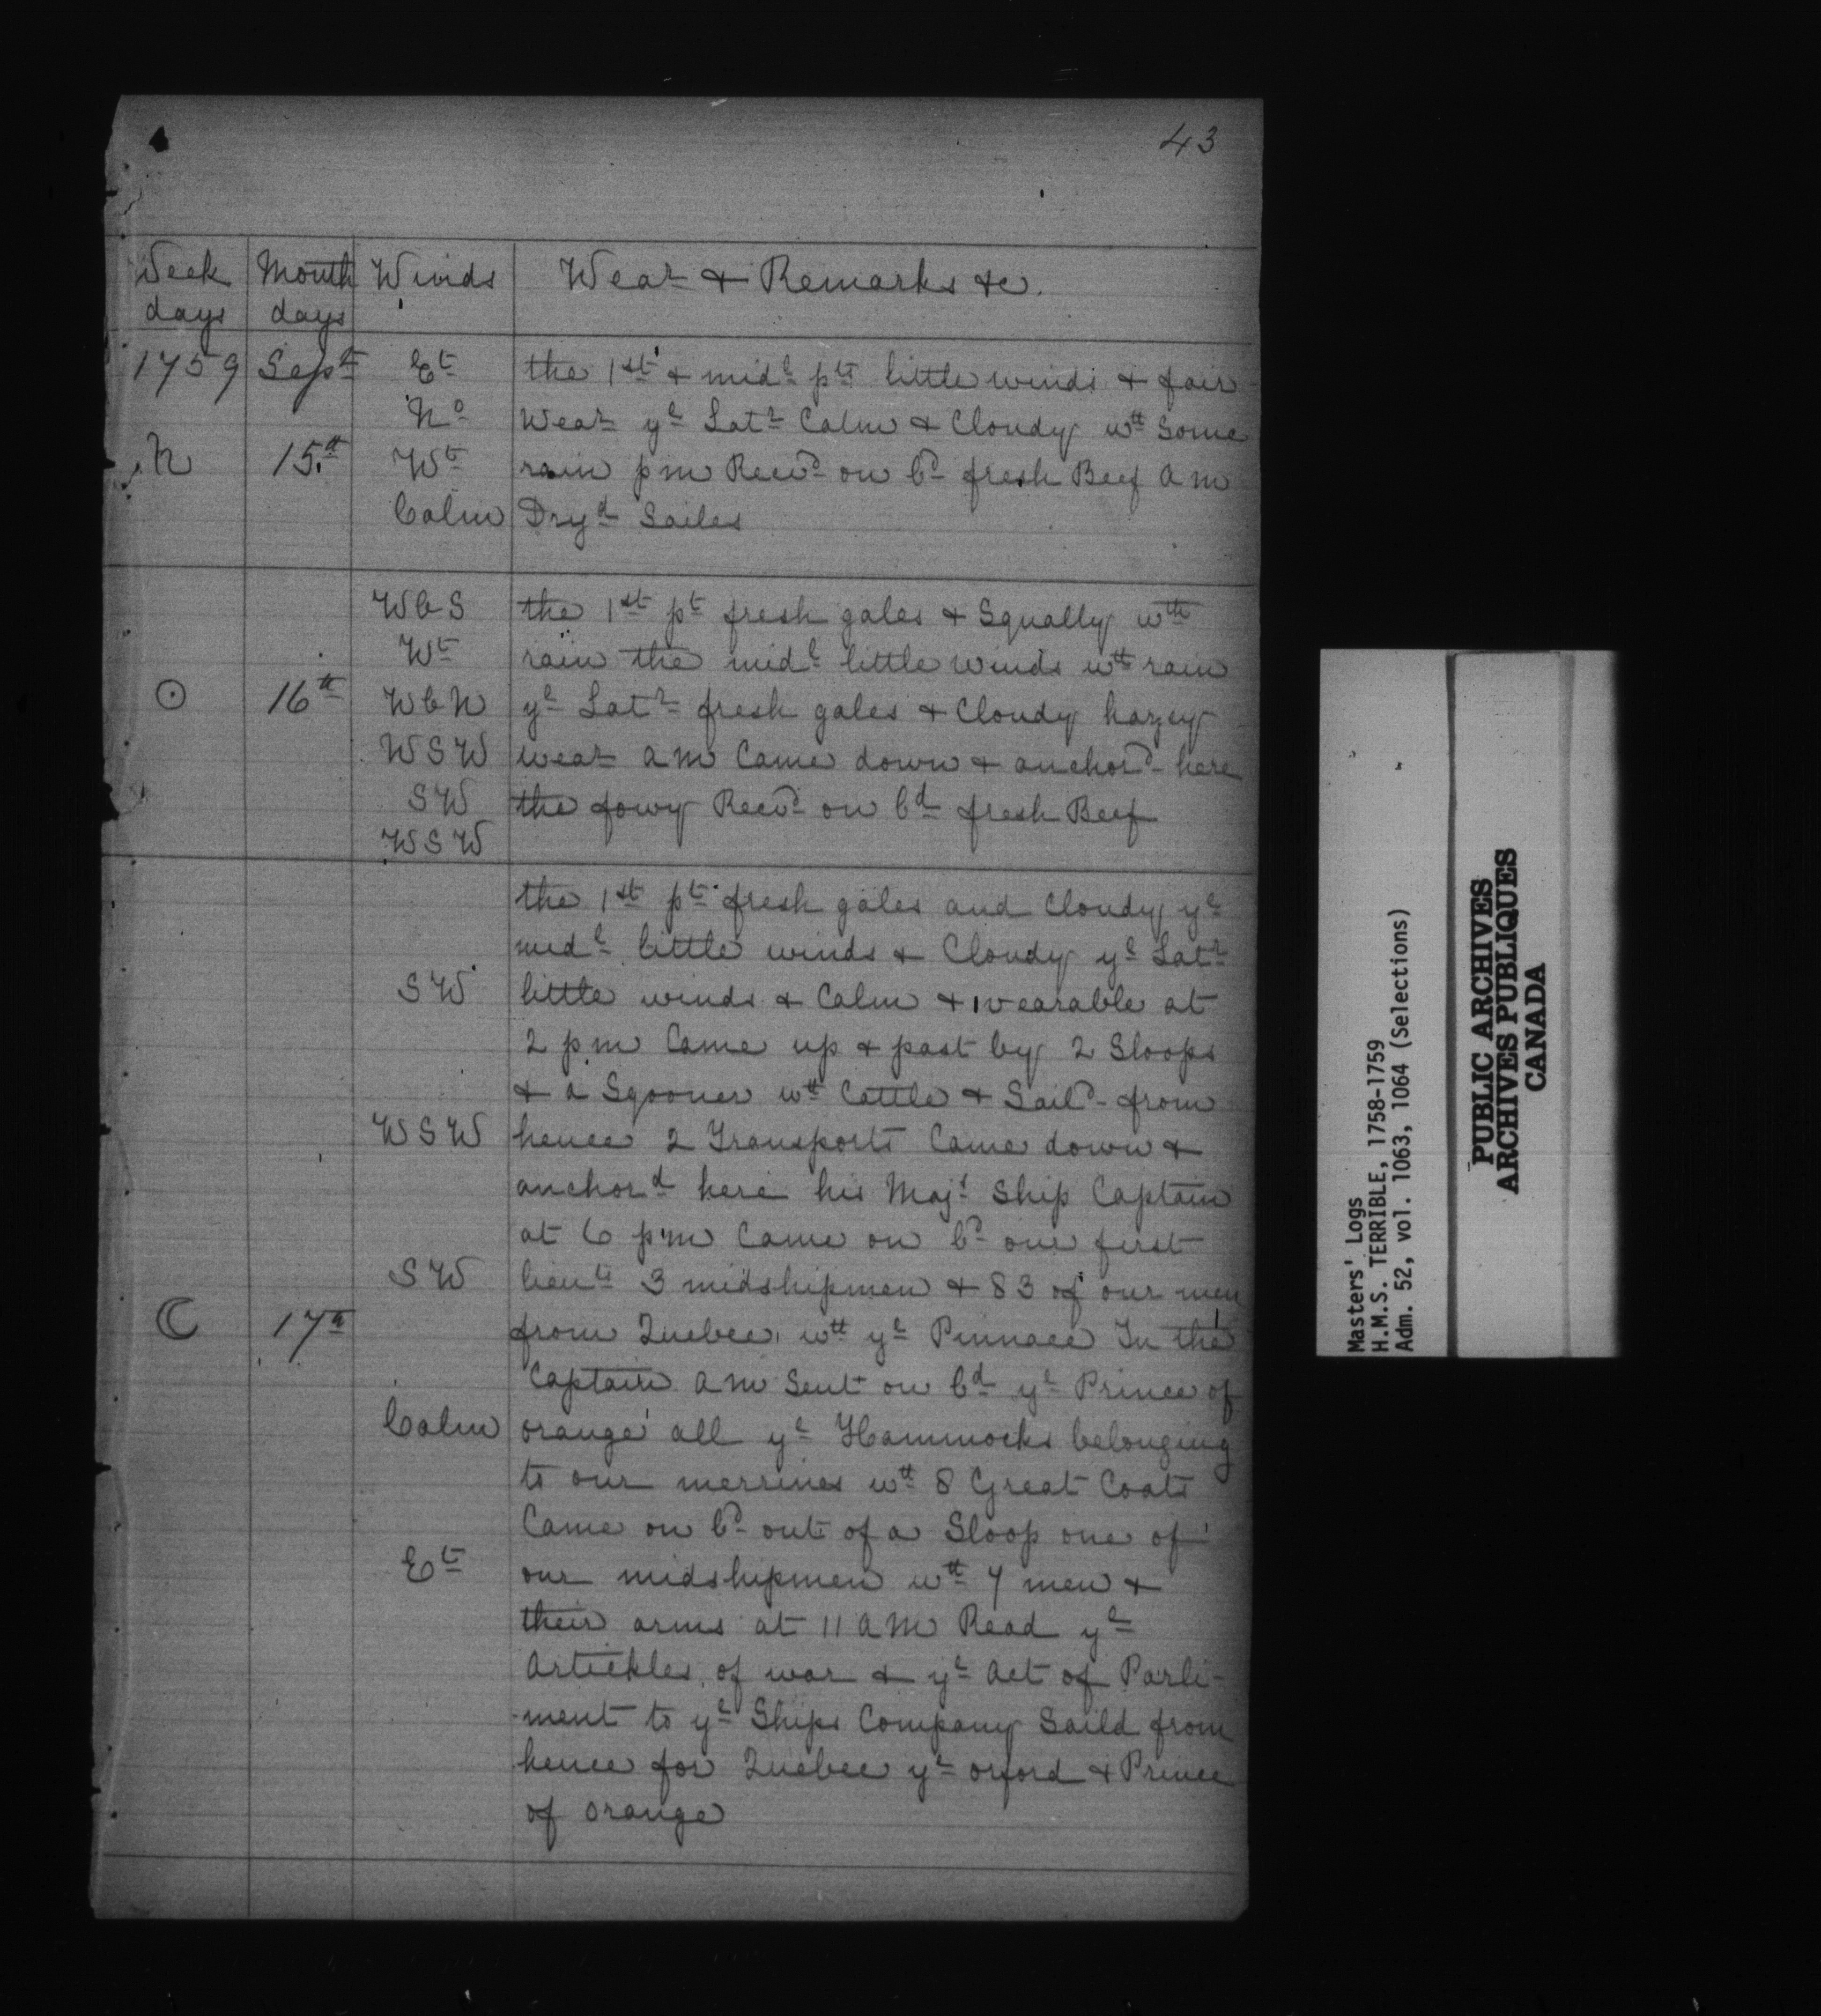 43
Week Month Winds Wear & Remarks &c.
days days
1759 Sept Et the 1st & midl pts little winds & fair
No Wear ye Latr Calm & Cloudy wth Some
15th Wt rain pm Recd on bd fresh Beef a m
Calm Dryd Sailes
WbS the 1st pt fresh gales & Squally wth
Wt rain the midl little winds wth rain
☉ 16th WbN ye Latr fresh gales & Cloudy hazey
WSW wear am Came down & anchord here
SW the fowy Recd on bd fresh Beef
WSW
the 1st pt fresh gales and Cloudy ye
midl little winds & Cloudy ye Latr
SW little winds & Calm & wearable at
2 pm Came up & past by 2 Sloops
& a Sgooner wth Cattle & Saild from
WSW hence 2 Transports Came down &
anchord here his Majs Ship Captain
at 6 pm Came on bd our first
SW lieut 3 midshipmen & 83 of our men
☾ 17th from Quebec wth ye Pinnace In the
Captain am Sent on bd ye Prince of
Calm orange all ye Hammocks belonging
to our merrines wth 8 Great Coats
Came on bd out of a Sloop one of
Et our midshipmen wth 7 men &
their arms at 11 am Read ye
Artickles of war & ye Act of Parli-
-ment to ye Ships Company Saild from
hence for Quebec ye orford & Prince
of orange
Masters' Logs
H.M.S. TERRIBLE, 1758-1759
Adm. 52, vol. 1063, 1064 (Selections)
PUBLIC ARCHIVES
ARCHIVES PUBLIQUES
CANADA